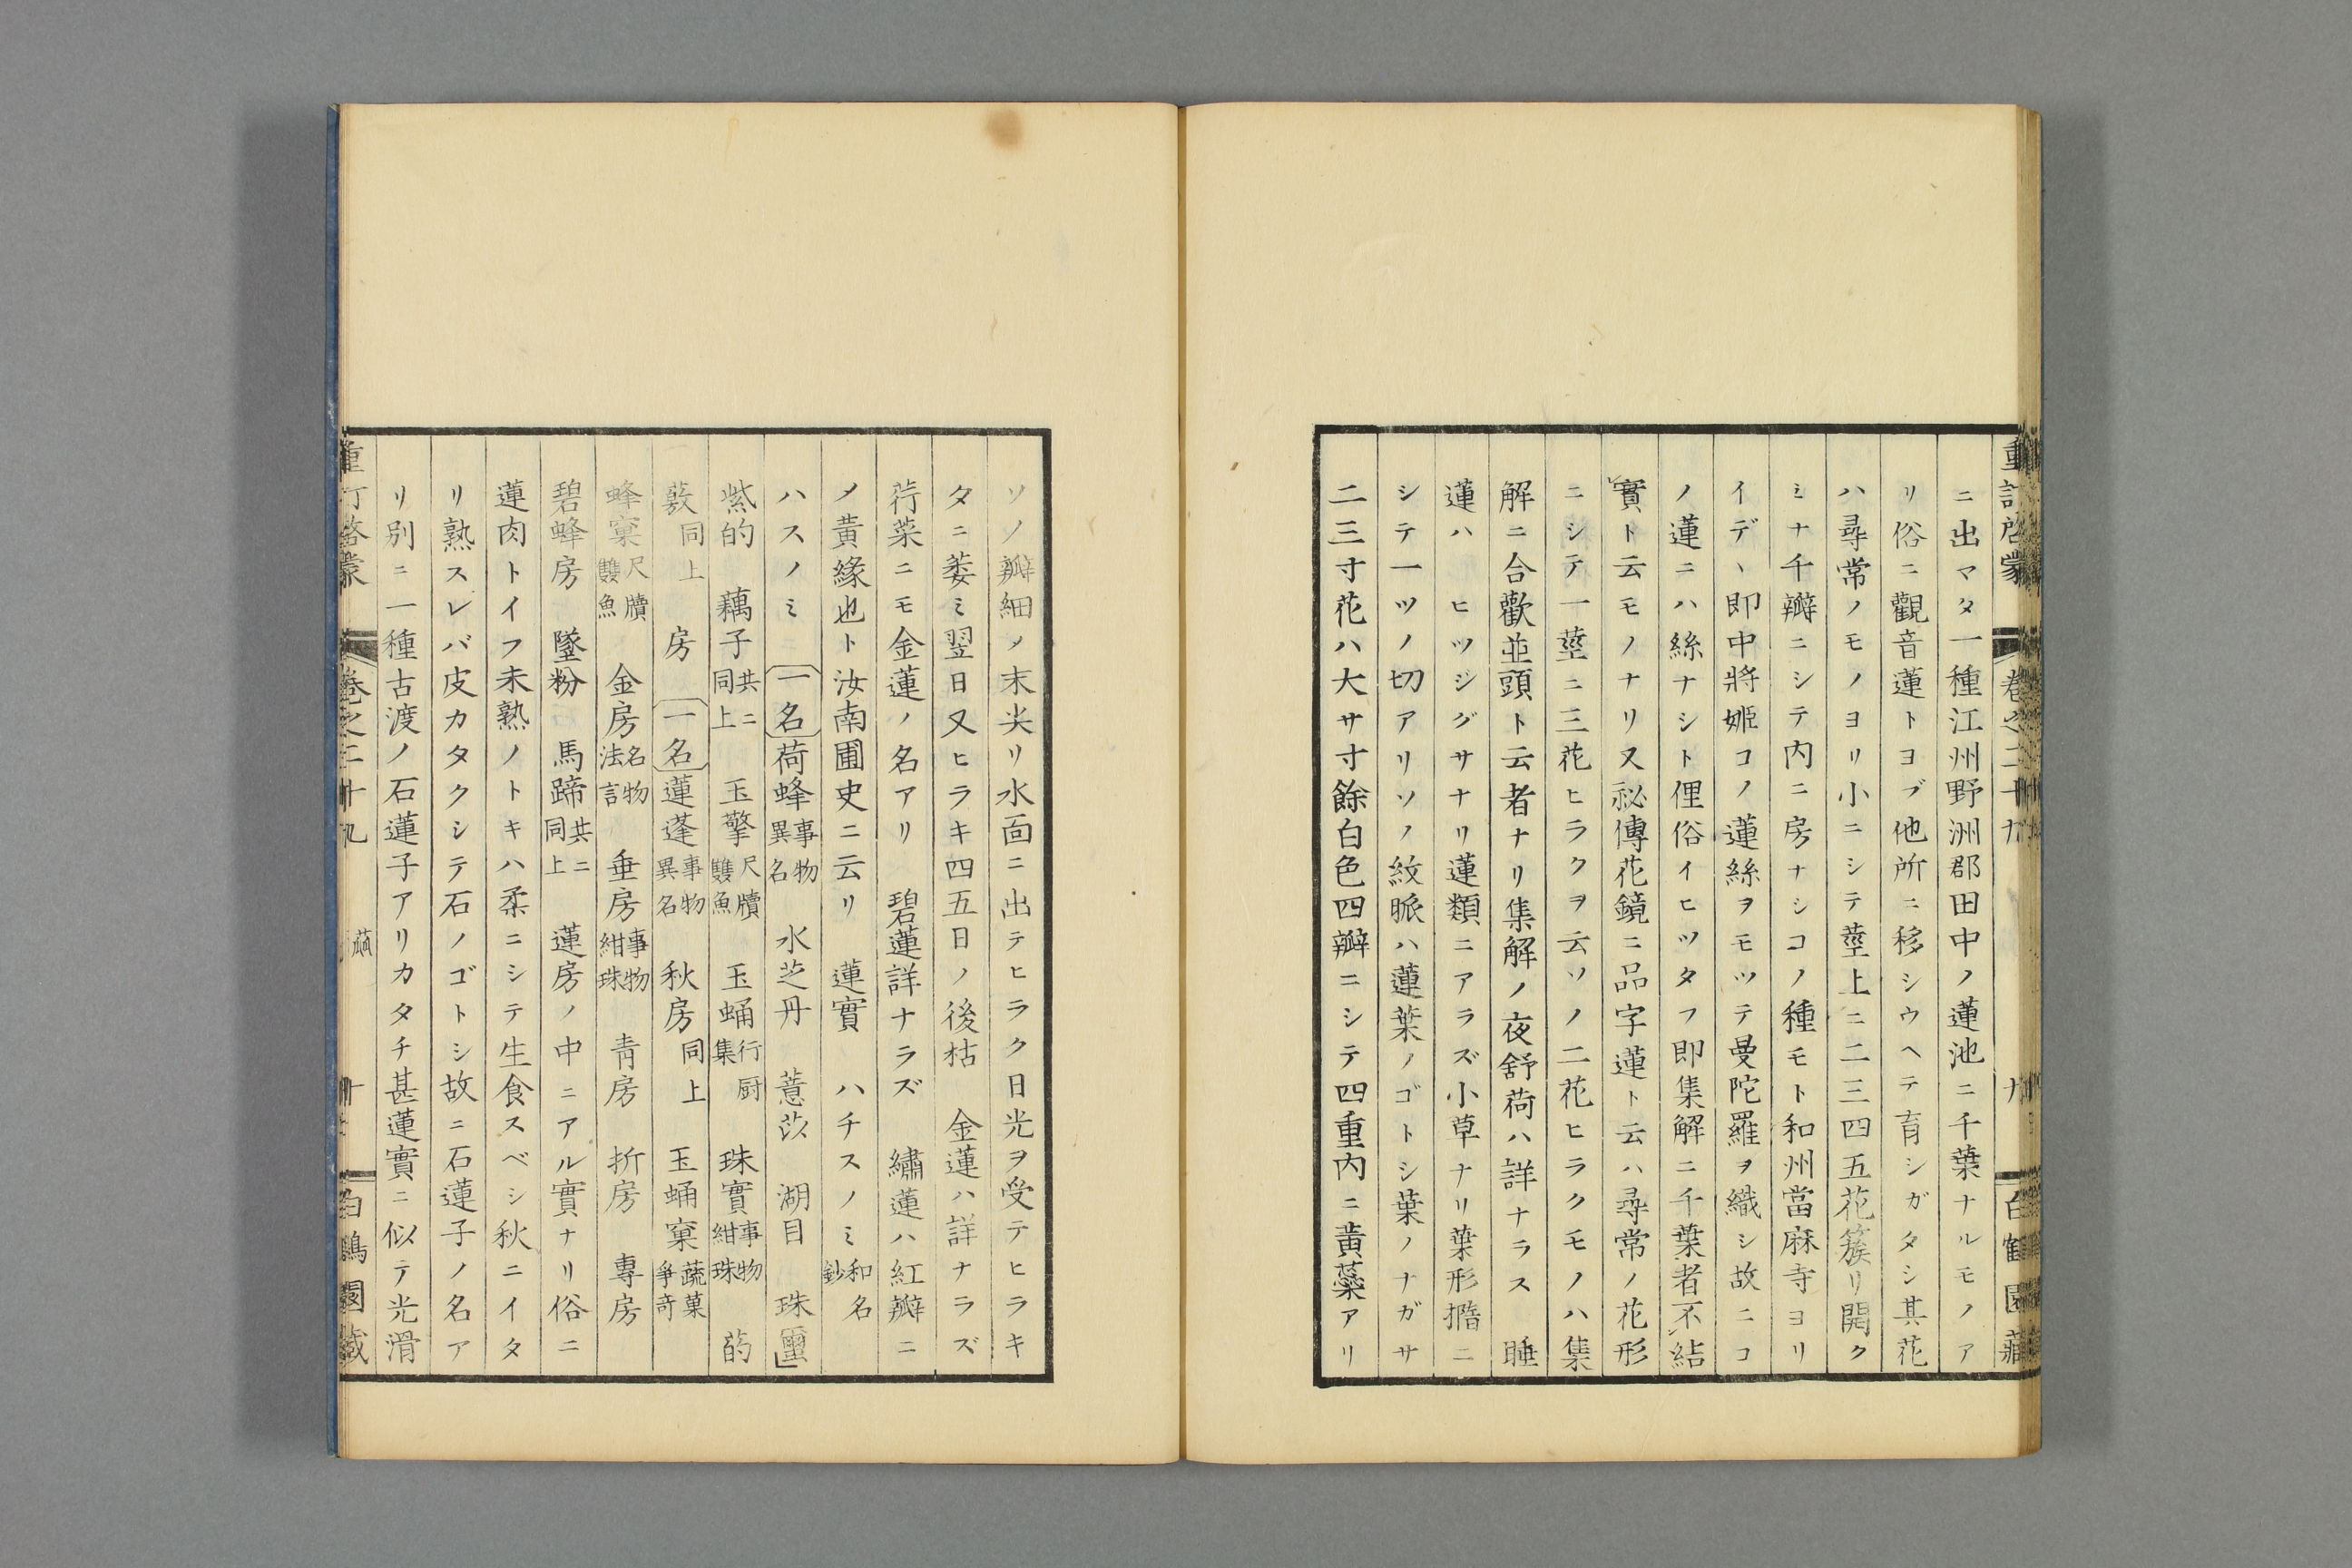 重訂啓蒙 卷之二十九 九 白鶴園藏
ニ出マタ一種江州野洲郡田中ノ蓮池ニ千葉ナルモノア
リ俗ニ觀音蓮トヨブ他所ニ移シウヘテ育シガタシ其花
ハ尋常ノモノヨリ小ニシテ莖上ニ二三四五花簇リ開ク
ミナ千瓣ニシテ内ニ房ナシコノ種モト和州當麻寺ヨリ
イデヽ即中將姫コノ蓮絲ヲモツテ曼陀羅ヲ織シ故ニコ
ノ蓮ニハ絲ナシト俚俗イヒツタフ即集解ニ千葉者不結
實ト云モノナリ又祕傳花鏡ニ品字蓮ト云ハ尋常ノ花形
ニシテ一莖ニ三花ヒラクヲ云ソノ二花ヒラクモノハ集
解ニ合歡並頭ト云者ナリ集解ノ夜舒荷ハ詳ナラス 睡
蓮ハ ヒツジグサナリ蓮類ニアラズ小草ナリ葉形橢ニ
シテ一ツノ切アリソノ紋脈ハ蓮葉ノゴトシ葉ノナガサ
二三寸花ハ大サ寸餘白色四瓣ニシテ四重内ニ黄蘂アリ
ソノ瓣細ノ末尖リ水面ニ出テヒラク日光ヲ受テヒラキ
タニ萎ミ翌日又ヒラキ四五日ノ後枯 金蓮ハ詳ナラズ
荇菜ニモ金蓮ノ名アリ 碧蓮詳ナラズ 繡蓮ハ紅瓣ニ
ノ黄緣也ト汝南圃史ニ云リ 蓮實 ハチスノミ和名鈔
ハスノミ 一名荷蜂事物異名 水芝丹 薏苡 湖目 珠璽
紫的 藕子共ニ同上 玉擎尺牘雙魚 玉蛹行厨集 珠實事物紺珠 菂
薂同上 房 一名蓮蓬事物異名 秋房同上 玉蛹窠蔬菓爭奇
蜂窠尺牘雙魚 金房名物法言 垂房事物紺珠 青房 折房 專房
碧蜂房 墜粉 馬蹄共ニ同上 蓮房ノ中ニアル實ナリ俗ニ
蓮肉トイフ未熟ノトキハ柔ニシテ生食スベシ秋ニイタ
リ熟スレバ皮カタクシテ石ノゴトシ故ニ石蓮子ノ名ア
リ別ニ一種古渡ノ石蓮子アリカタチ甚蓮實ニ似テ光滑
重訂啓蒙 卷之二十九 十 白鶴園藏